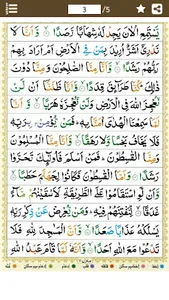 3 /5
يَّسْتَمِعِ الْاٰنَ يَجِدْ لَهٗ شِهَابًا رَّصَدًا ۙ وَّاَنَّا لَا
نَدْرِيْٓ اَشَرٌّ اُرِيْدَ بِمَنْ فِي الْاَرْضِ اَمْ اَرَادَ بِهِمْ
رَبُّهُمْ رَشَدًا ۙ وَّاَنَّا مِنَّا الصّٰلِحُوْنَ وَمِنَّا دُوْنَ
ذٰلِكَ ؕ كُنَّا طَرَآئِقَ قِدَدًا ۙ وَّاَنَّا ظَنَنَّآ اَنْ لَّنْ
نُّعْجِزَ اللّٰهَ فِي الْاَرْضِ وَلَنْ نُّعْجِزَهٗ هَرَبًا ۙ وَّاَنَّا
لَمَّا سَمِعْنَا الْهُدٰٓى اٰمَنَّا بِهٖ ؕ فَمَنْ يُّؤْمِنْۢ بِرَبِّهٖ
فَلَا يَخَافُ بَخْسًا وَّلَا رَهَقًا ۙ وَّاَنَّا مِنَّا الْمُسْلِمُوْنَ
وَمِنَّا الْقٰسِطُوْنَ ؕ فَمَنْ اَسْلَمَ فَاُولٰٓئِكَ تَحَرَّوْا
رَشَدًا وَاَمَّا الْقٰسِطُوْنَ فَكَانُوْا لِجَهَنَّمَ حَطَبًا ۙ
وَّاَنْ لَّوِ اسْتَقَامُوْا عَلَى الطَّرِيْقَةِ لَاَسْقَيْنٰهُمْ مَّآءً
غَدَقًا ۙ لِّنَفْتِنَهُمْ فِيْهِ ؕ وَمَنْ يُّعْرِضْ عَنْ ذِكْرِ
رَبِّهٖ يَسْلُكْهُ عَذَابًا صَعَدًا ۙ وَّاَنَّ الْمَسٰجِدَ لِلّٰهِ فَلَا
تَدْعُوْا مَعَ اللّٰهِ اَحَدًا ۙ وَّاَنَّهٗ لَمَّا قَامَ عَبْدُ اللّٰهِ